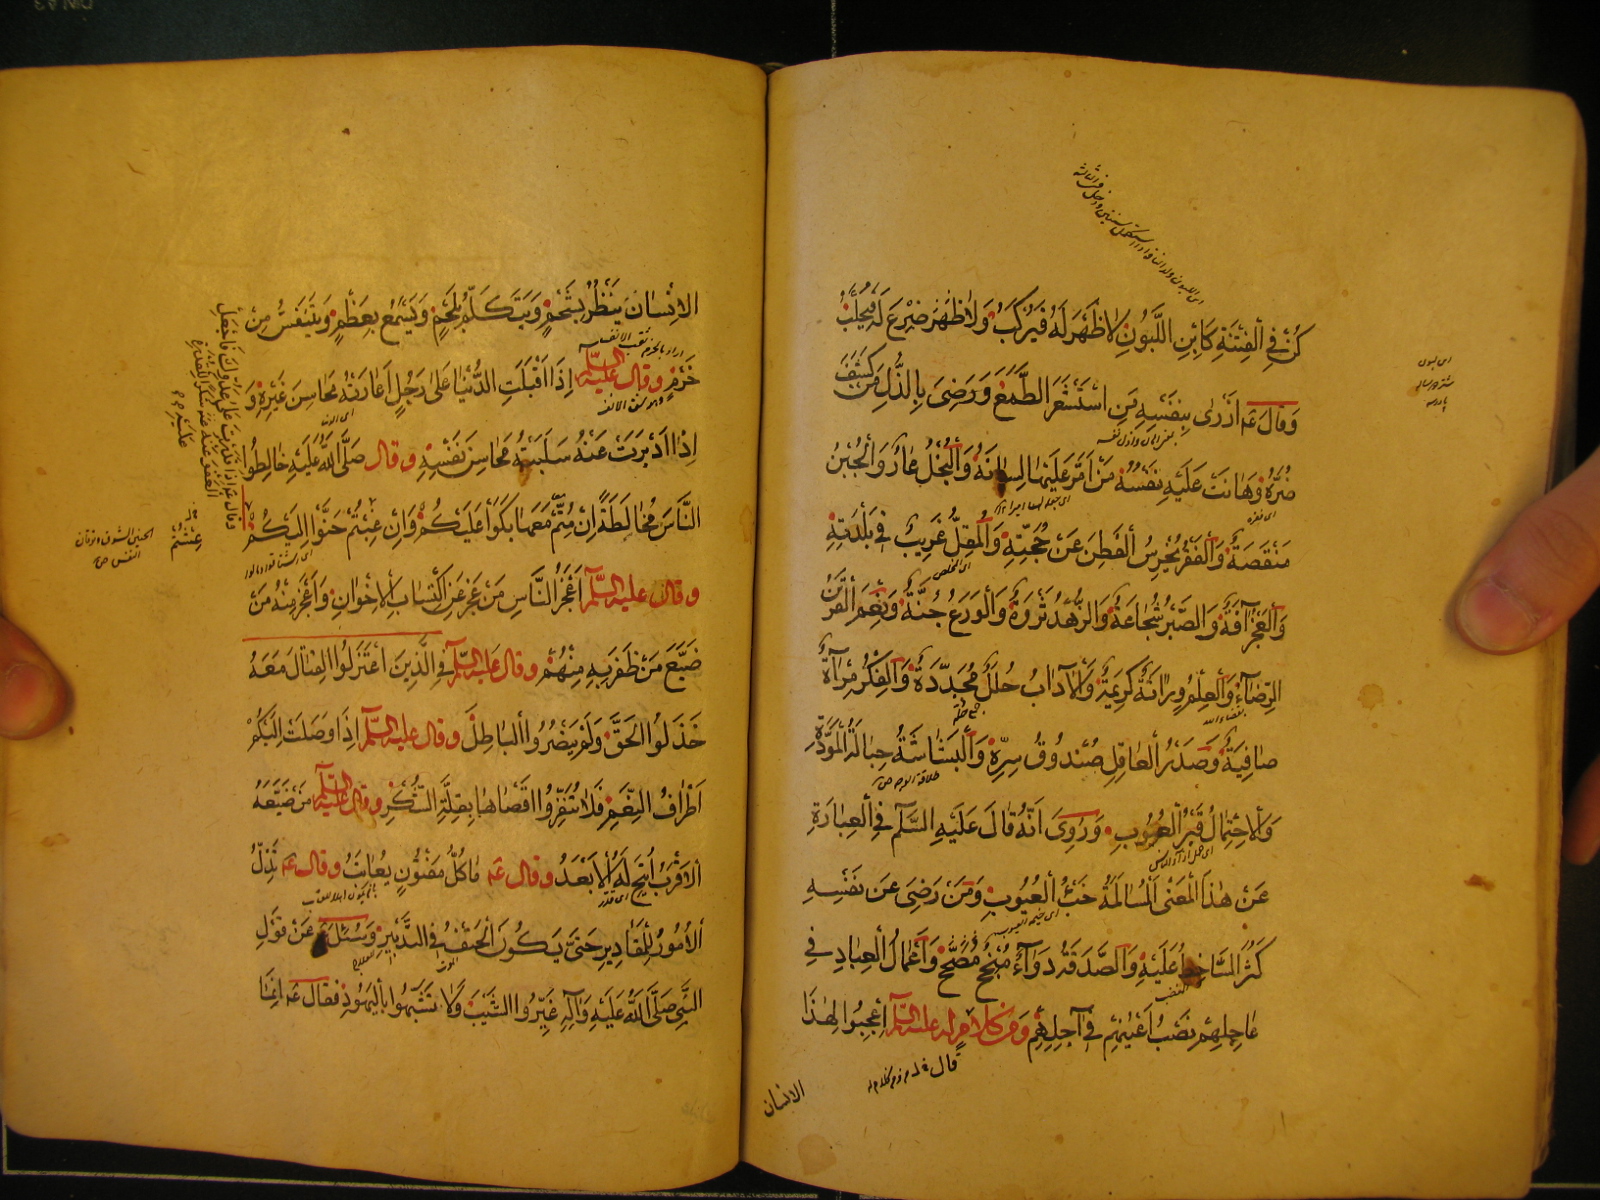 كُنْ فِي الْفِتْنَةِ كَابْنِ اللَّبُونِ لَا ظَهْرَ لَهُ فَيُرْكَبُ وَلَا ظَهْرَ ضَرْعَ لَهُ فَيُحْلَبُ
وَقَالَ عم ازْرَى بِنَفْسِهِ مَنِ اسْتَشْعَرَ الطَّمَعَ وَرَضِيَ بِالذُّلِّ مَنْ كَشَفَ
ضُرَّهُ وَهَانَتْ عَلَيْهِ نَفْسُهُ مَنْ اَمَّرَ عَلَيْهَا لِسَانَهُ وَالْبُخْلُ عَارٌ وَالْجُبْنُ
مَنْقَصَةٌ وَالْفَقْرُ يُخْرِسُ الْفَطِنَ عَنْ حُجَّتِهِ وَالْمُقِلُّ غَرِيبٌ فِي بَلْدَتِهِ
وَالْعَجْزُ آفَةٌ وَالصَّبْرُ شُجَاعَةٌ وَالزُّهْدُ ثَرْوَةٌ وَالْوَرَعُ جُنَّةٌ وَنِعْمَ الْقَرِينُ
الرِّضَاءُ وَالْعِلْمُ وِرَاثَةٌ كَرِيمَةٌ وَالْآدَابُ حُلَلٌ مُجَدَّدَةٌ وَالْفِكْرُ مِرْآةٌ
صَافِيَةٌ وَصَدْرُ الْعَاقِلِ صُنْدُوقُ سِرِّهِ وَالْبَشَاشَةُ حِبَالَةُ الْمَوَدَّةِ
وَالِاحْتِمَالُ قَبْرُ الْعُيُوبِ وَرُوِيَ اَنَّهُ قَالَ عَلَيْهِ السَّلَمُ فِي الْعِبَارَةِ
عَنْ هٰذَا الْمَعْنَى الْمُسَالَمَةُ خَبْءُ الْعُيُوبِ وَمَنْ رَضِيَ عَنْ نَفْسِهِ
كَثُرَ السَّاخِطُ عَلَيْهِ وَالصَّدَقَةُ دَوَاءٌ مُنْجِحٌ وَاَعْمَالُ الْعِبَادِ فِي
عَاجِلِهِمْ نَصْبُ اَعْيُنِهِمْ فِي آجِلِهِمْ وَمِنْ كَلَامٍ لَهُ عَلَيْهِ السَّلَمُ اعْجَبُوا لِهٰذَا
الانسان
الْاِنْسَانِ يَنْظُرُ بِشَحْمٍ وَيَتَكَلَّمُ بِلَحْمٍ وَيَسْمَعُ بِعَظْمٍ وَيَتَنَفَّسُ مِنْ
خَرْمٍ وَقَالَ عَلَيْهِ السَّلَمُ اِذَا اَقْبَلَتِ الدُّنْيَا عَلَى رَجُلٍ اَعَارَتْهُ مَحَاسِنَ غَيْرِهِ وَ
اِذَا اَدْبَرَتْ عَنْهُ سَلَبَتْهُ مَحَاسِنَ نَفْسِهِ وَقَالَ صَلَّى اللهُ عَلَيْهِ خَالِطُوا
النَّاسَ مُخَالَطَةً اِنْ مُتُّمْ مَعَهَا بَكَوْا عَلَيْكُمْ وَاِنْ غِبْتُمْ حَنُّوا اِلَيْكُمْ
عِشْتُمْ
وَقَالَ عَلَيْهِ السَّلَمُ اَعْجَزُ النَّاسِ مَنْ عَجَزَ عَنِ اكْتِسَابِ الْاِخْوَانِ وَاَعْجَزُ مِنْهُ مَنْ
ضَيَّعَ مَنْ ظَفِرَ بِهِ مِنْهُمْ وَقَالَ عَلَيْهِ السَّلَمُ فِي الَّذِينَ اعْتَزَلُوا الْقِتَالَ مَعَهُ
خَذَلُوا الْحَقَّ وَلَمْ يَنْصُرُوا الْبَاطِلَ وَقَالَ عَلَيْهِ السَّلَمُ اِذَا وَصَلَتْ اِلَيْكُمْ
اَطْرَافُ النِّعَمِ فَلَا تُنَفِّرُوا اَقْصَاهَا بِقِلَّةِ الشُّكْرِ وَقَالَ عَلَيْهِ السَّلَمُ مَنْ ضَيَّعَهُ
الْاَقْرَبُ اُتِيحَ لَهُ الْاَبْعَدُ وَقَالَ عم مَا كُلُّ مَفْتُونٍ يُعَاتَبُ وَقَالَ عم تَذِلُّ
الْاُمُورُ لِلْمَقَادِيرِ حَتَّى يَكُونَ الْحَتْفُ فِي التَّدْبِيرِ وَسُئِلَ عَنْ قَوْلِ
النَّبِيِّ صَلَّى اللهُ عَلَيْهِ وَآلِهِ غَيِّرُوا الشَّيْبَ وَلَا تَشَبَّهُوا بِالْيَهُودِ فَقَالَ عم اِنَّمَا